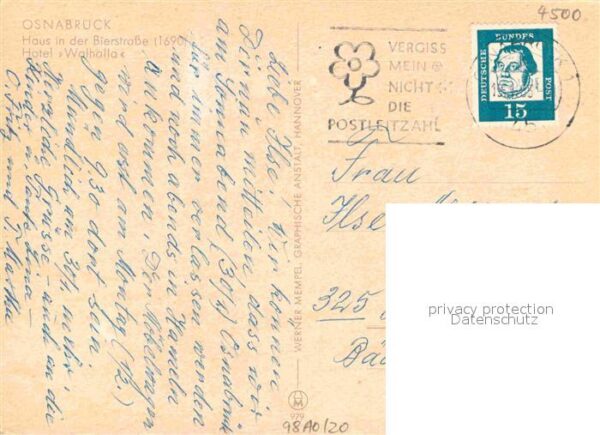 OSNABRÜCK
Haus in der Bierstraße (1690)
Hotel »Walhalla«
Liebe Ilse! Wir können
Dir nun mitteilen, dass wir
am Sonnabend (30/4) Osnabrück
für immer verlassen werden
und noch abends in Hameln
ankommen. Der Möbelwagen
wird erst am Montag (2.)
gegen 9.30 dort sein.
Mündlich am 30/4 mehr.
Herzliche Grüsse – auch an die
O. Fritz und T. Martha
WERNER MEMPEL, GRAPHISCHE ANSTALT, HANNOVER
979
98A0/20
4500
VERGISS
MEIN
NICHT
DIE
POSTLEITZAHL
DEUTSCHE BUNDESPOST
15
Frau
Ilse
325
privacy protection
Datenschutz